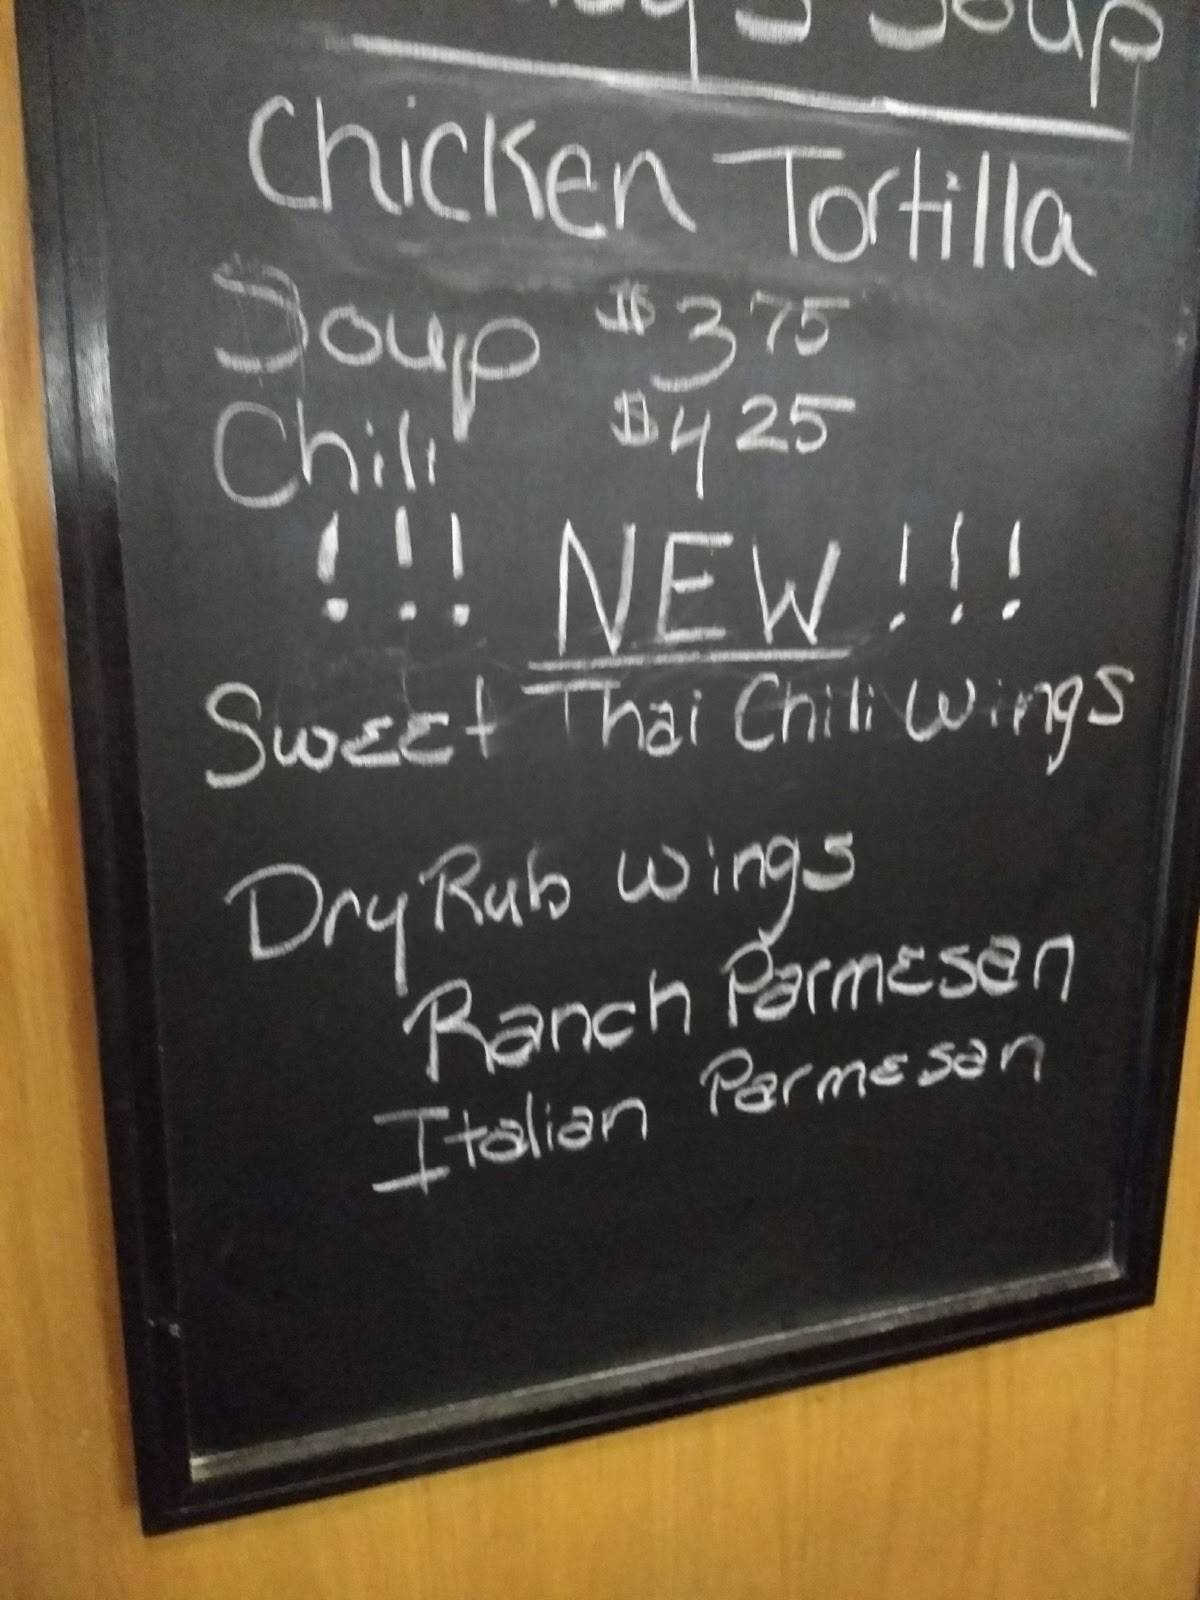 Soup
Chicken Tortilla
Soup $3 75
Chili $4 25
!!! NEW !!!
Sweet Thai Chili Wings
Dry Rub Wings
Ranch Parmesan
Italian Parmesan